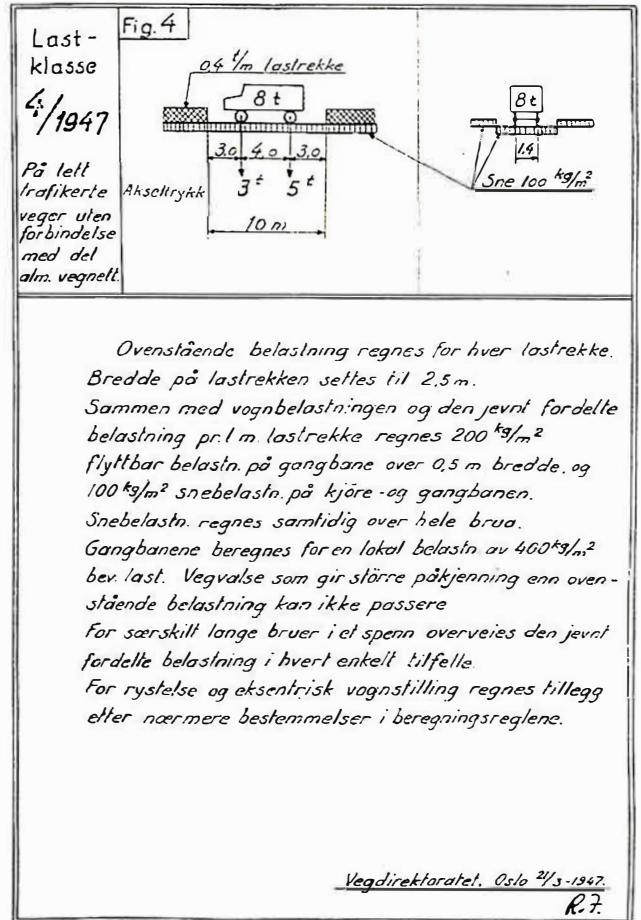 Last-
klasse
4/1947
På lett
trafikerte
veger uten
forbindelse
med det
alm. vegnett.
Fig. 4
0,4 t/m lastrekke
8 t
3.0 4.0 3.0
Akseltrykk 3 t 5 t
10 m
8 t
1.4
Sne 100 kg/m²
Ovenstående belastning regnes for hver lastrekke.
Bredde på lastrekken settes til 2,5 m.
Sammen med vognbelastningen og den jevnt fordelte
belastning pr. l m. lastrekke regnes 200 kg/m²
flyttbar belastn. på gangbane over 0,5 m bredde, og
100 kg/m² snebelastn. på kjöre- og gangbanen.
Snebelastn. regnes samtidig over hele brua.
Gangbanene beregnes for en lokal belastn av 400 kg/m²
bev. last. Vegvalse som gir större påkjenning enn oven-
stående belastning kan ikke passere
For særskilt lange bruer i et spenn overveies den jevnt
fordelte belastning i hvert enkelt tilfelle.
For rystelse og eksentrisk vognstilling regnes tillegg
etter nærmere bestemmelser i beregningsreglene.
Vegdirektoratet, Oslo 21/3-1947.
R.F.